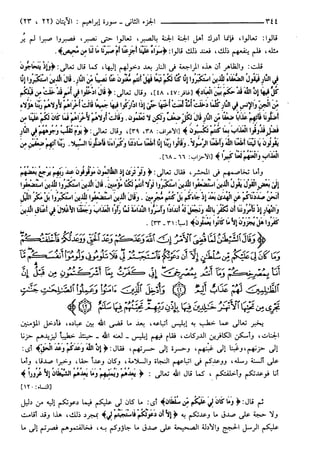 ٣٤٤ الجزء الثاني - سورة إبراهيم : الآيتان (٢٢ ، ٢٣)
قالوا: تعالوا، فإنما أدرك أهل الجنة الجنة بالصبر، تعالوا حتى نصبر، فصبروا صبرا لم ير
مثله، فلم ينفعهم ذلك، فعند ذلك قالوا: ﴿سواء علينا أجزعنا أم صبرنا ما لنا من محيص﴾.
قلت: والظاهر أن هذه المراجعة في النار بعد دخولهم إليها، كما قال تعالى: ﴿وإذ يتحاجون
في النار فيقول الضعفاء للذين استكبروا إنا كنا لكم تبعا فهل أنتم مغنون عنا نصيبا من النار. قال الذين استكبروا إنا
كل فيها إن الله قد حكم بين العباد﴾ [غافر: ٤٧، ٤٨]، وقال تعالى: ﴿قال ادخلوا في أمم قد خلت من قبلكم
من الجن والإنس في النار كلما دخلت أمة لعنت أختها حتى إذا اداركوا فيها جميعا قالت أخراهم لأولاهم ربنا هؤلاء
أضلونا فآتهم عذابا ضعفا من النار قال لكل ضعف ولكن لا تعلمون. وقالت أولاهم لأخراهم فما كان لكم علينا من
فضل فذوقوا العذاب بما كنتم تكسبون﴾ [الأعراف: ٣٨، ٣٩]، وقال تعالى: ﴿يوم تقلب وجوههم في النار
يقولون يا ليتنا أطعنا الله وأطعنا الرسولا. وقالوا ربنا إنا أطعنا سادتنا وكبراءنا فأضلونا السبيلا. ربنا آتهم ضعفين من
العذاب والعنهم لعنا كبيرا﴾ [الأحزاب: ٦٦ـ ٦٨].
وأما تخاصمهم في المحشر، فقال تعالى: ﴿ولو ترى إذ الظالمون موقوفون عند ربهم يرجع بعضهم
إلى بعض القول يقول الذين استضعفوا للذين استكبروا لولا أنتم لكنا مؤمنين. قال الذين استكبروا للذين استضعفوا
أنحن صددناكم عن الهدى بعد إذ جاءكم بل كنتم مجرمين. وقال الذين استضعفوا للذين استكبروا بل مكر الليل
والنهار إذ تأمروننا أن نكفر بالله ونجعل له أندادا وأسروا الندامة لما رأوا العذاب وجعلنا الأغلال في أعناق الذين
كفروا هل يجزون إلا ما كانوا يعملون﴾ [سبأ: ٣١ـ ٣٣].
﴿وقال الشيطان لما قضي الأمر إن الله وعدكم وعد الحق ووعدتكم
فأخلفتكم وما كان لي عليكم من سلطان إلا أن دعوتكم فاستجبتم لي فلا تلوموني ولوموا
أنفسكم ما أنا بمصرخكم وما أنتم بمصرخي إني كفرت بما أشركتمون من قبل إن
الظالمين لهم عذاب أليم ۝ وأدخل الذين آمنوا وعملوا الصالحات جنات
تجري من تحتها الأنهار خالدين فيها بإذن ربهم تحيتهم فيها سلام ۝﴾
يخبر تعالى عما خطب به إبليس أتباعه، بعد ما قضى الله بين عباده، فأدخل المؤمنين
الجنات، وأسكن الكافرين الدركات، فقام فيهم إبليس - لعنه الله - حينئذ خطيبا ليزيدهم حزنا
إلى حزنهم، وغبنا إلى غبنهم، وحسرة إلى حسرتهم، فقال: ﴿إن الله وعدكم وعد الحق﴾ أي:
على ألسنة رسله، ووعدكم في اتباعهم النجاة والسلامة، وكان وعدا حقا، وخبرا صدقا، وأما
أنا فوعدتكم وأخلفتكم، كما قال الله تعالى: ﴿يعدهم ويمنيهم وما يعدهم الشيطان إلا غرورا﴾
[النساء: ١٢٠]
ثم قال: ﴿وما كان لي عليكم من سلطان﴾ أي: ما كان لي عليكم فيما دعوتكم إليه من دليل
ولا حجة على صدق ما وعدتكم به ﴿إلا أن دعوتكم فاستجبتم لي﴾ بمجرد ذلك، هذا وقد أقامت
عليكم الرسل الحجج والأدلة الصحيحة على صدق ما جاؤوكم به، فخالفتموهم فصرتم إلى ما